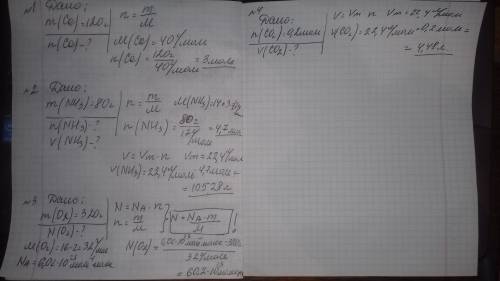 №1 Дано:
m(Ca)=120г
n(Ca)-?
n = m/M
M(Ca)=40г/моль
n(Ca)= 120г / 40г/моль = 3моль
№2 Дано:
m(NH3)=80г
n(NH3)-?
V(NH3)-?
n = m/M M(NH3)=14+3=17г/моль
n(NH3)= 80г / 17г/моль = 4,7моль
V = Vm·n Vm=22,4л/моль
V(NH3)=22,4л/моль·4,7моль=
=105,28л
№3 Дано:
m(O2)=320г
N(O2)-?
M(O2)=16·2=32г/моль
NA=6,02·10²³молекул/моль
N=NA·n
n= m/M
N= NA·m / M !
N(O2)= 6,02·10²³молекул/моль·320г / 32г/моль
=60,2·10²³молекул
№4 Дано:
n(CO2)=0,2моль
V(CO2)-?
V=Vm·n Vm=22,4л/моль
V(CO2)=22,4л/моль·0,2моль=
=4,48л